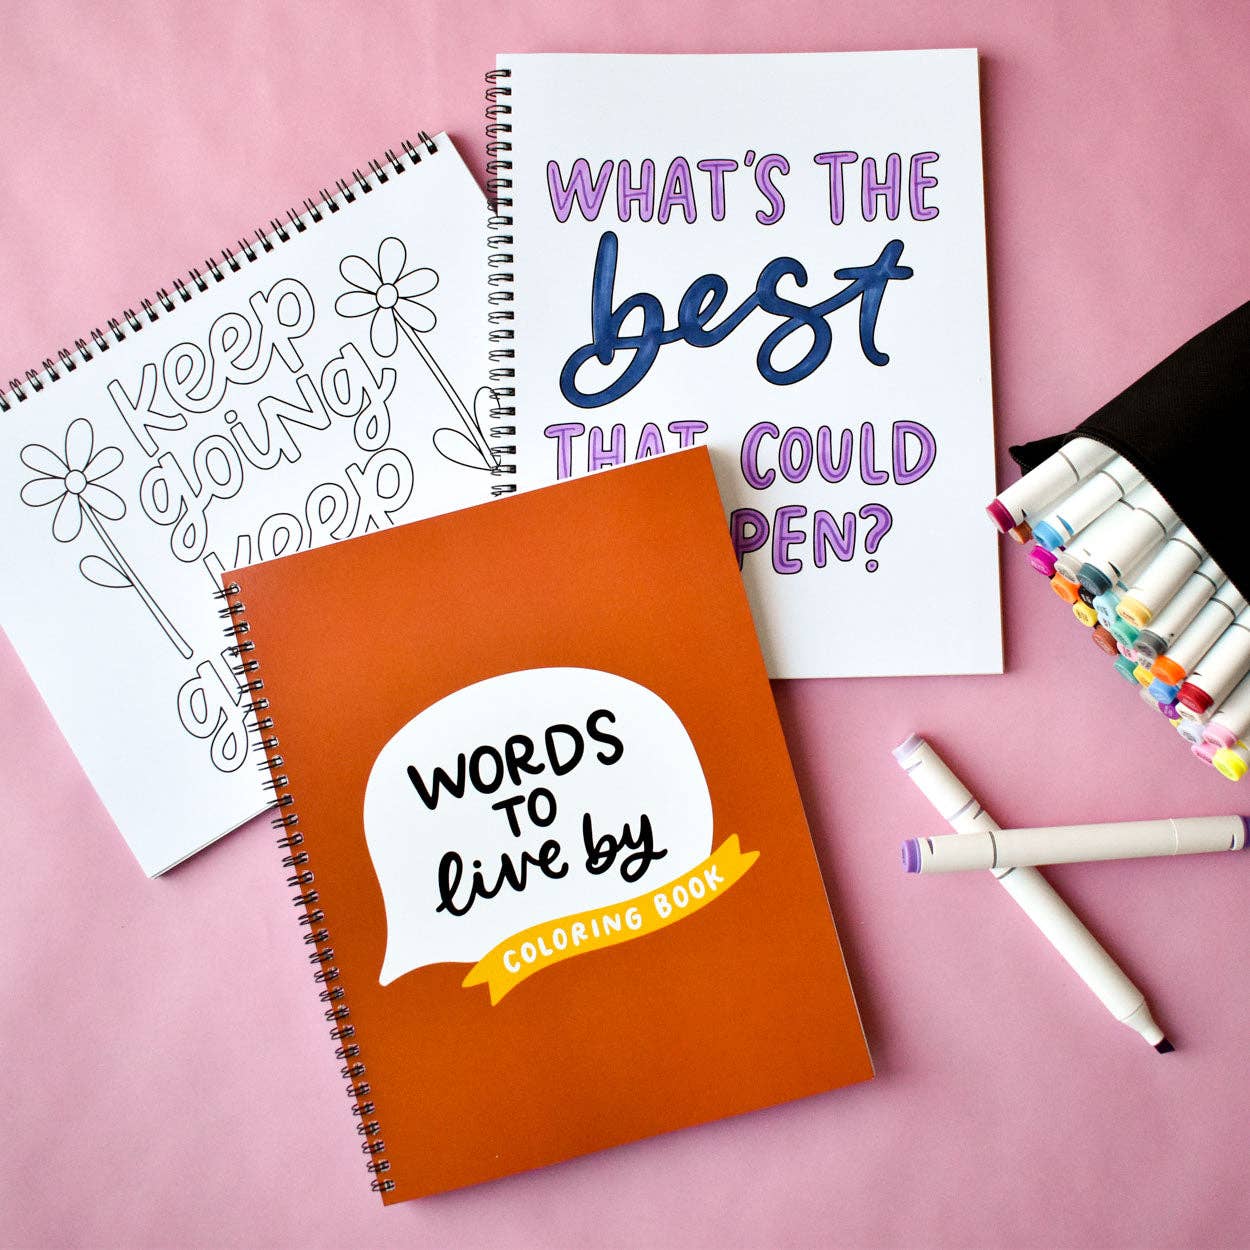 keep
going
keep
WHAT'S THE
best
THAT COULD
WORDS
TO
live by
COLORING BOOK